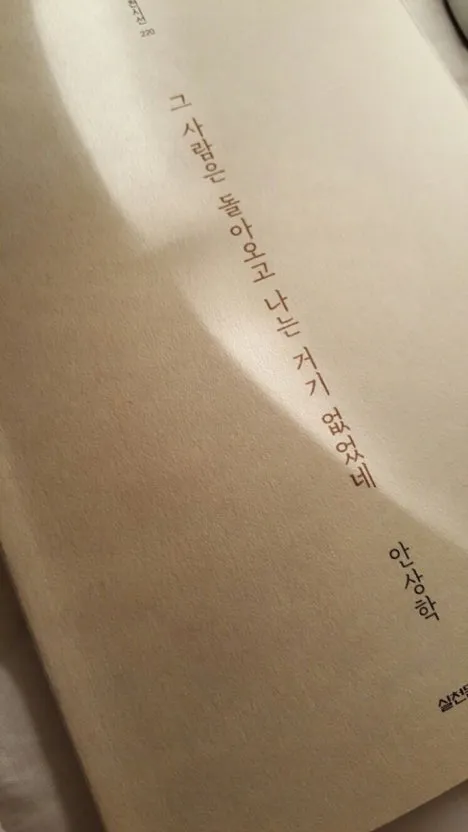 천시선 220
그 사람은 돌아오고 나는 거기 없었네
안상학
실천